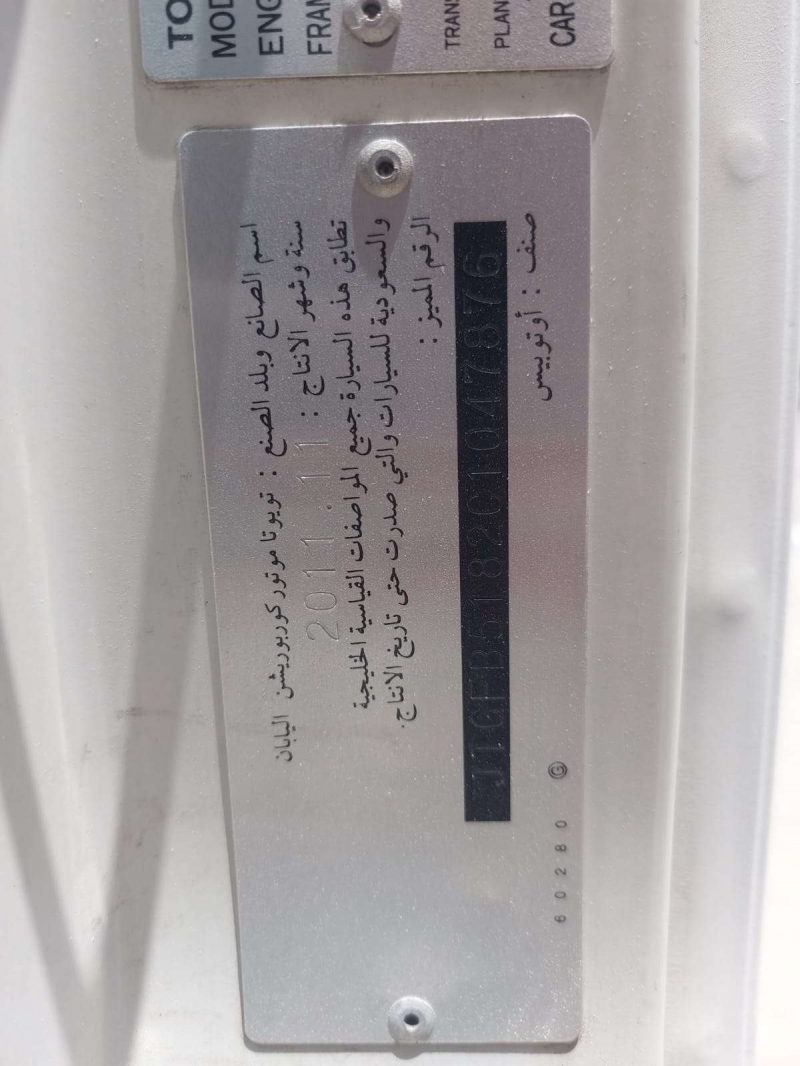 TO
MOD
ENG
FRAM
TRANS
PLAN
CAR
اسم الصانع وبلد الصنع : تويوتا موتور كوربوريشن اليابان
سنة وشهر الانتاج : 2011.11
تطابق هذه السيارة جميع المواصفات القياسية الخليجية
والسعودية للسيارات والتي صدرت حتى تاريخ الانتاج.
الرقم المميز :
JTGFB5182C1047876
صنف : أوتوبيس
60280 G